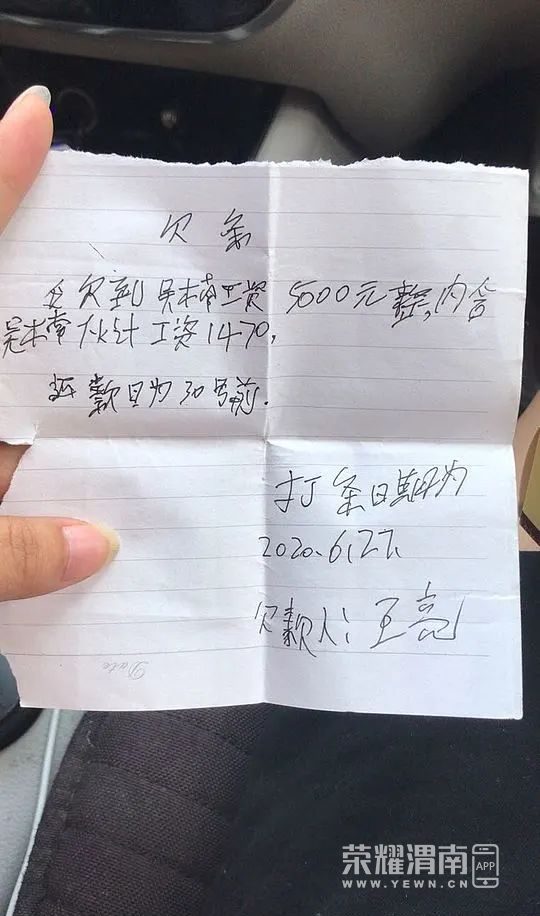 欠条
今欠到吴木帝工资 5000元整,内含
吴木帝伙计工资1470,
还款日为30号前.
打条日期为
2020.6.27.
欠款人: 王亮
Date
荣耀渭南 APP
WWW.YEWN.CN